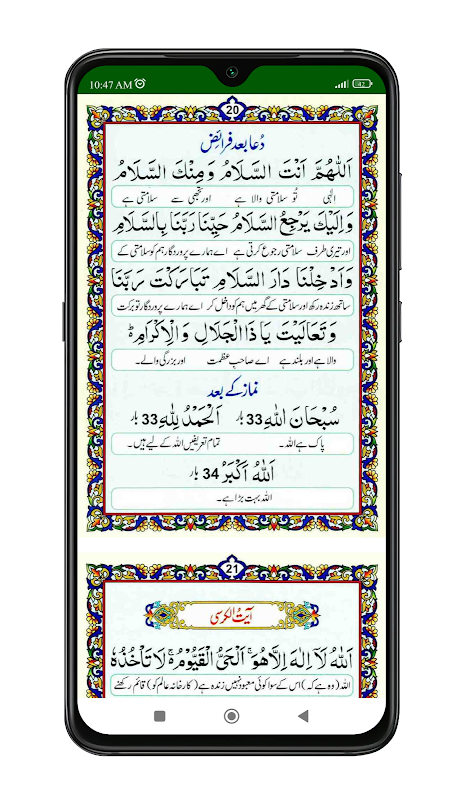 10:47 AM
42
20
دُعا بعد فرائض
اَللّٰهُمَّ اَنْتَ السَّلَامُ وَمِنْكَ السَّلَامُ
الٰہی تُو سلامتی والا ہے اور تجھی سے سلامتی ہے
وَاِلَيْكَ يَرْجِعُ السَّلَامُ حَيِّنَا رَبَّنَا بِالسَّلَامِ
اور تیری طرف سلامتی رجوع کرتی ہے اے ہمارے پروردگار ہم کو سلامتی کے
وَاَدْخِلْنَا دَارَ السَّلَامِ تَبَارَكْتَ رَبَّنَا
ساتھ زندہ رکھ اور سلامتی کے گھر میں ہم کو داخل کر اے ہمارے پروردگار تو برکت
وَتَعَالَيْتَ يَا ذَا الْجَلَالِ وَالْاِكْرَامِ ط
والا ہے اور بلند ہے اے صاحبِ عظمت اور بزرگی والے۔
نماز کے بعد
سُبْحَانَ اللّٰهِ 33 بار اَلْحَمْدُ لِلّٰهِ 33 بار
پاک ہے اللہ۔ تمام تعریفیں اللہ کے لیے ہیں۔
اَللّٰهُ اَكْبَرُ 34 بار
اللہ بہت بڑا ہے۔
21
آیتُ الکرسی
اَللّٰهُ لَآ اِلٰهَ اِلَّا هُوَ ۚ اَلْحَيُّ الْقَيُّوْمُ ۚ لَا تَاْخُذُهٗ
اللہ (وہ ہے کہ) اس کے سوا کوئی معبود نہیں زندہ ہے (کارخانہ عالم کو) قائم رکھنے